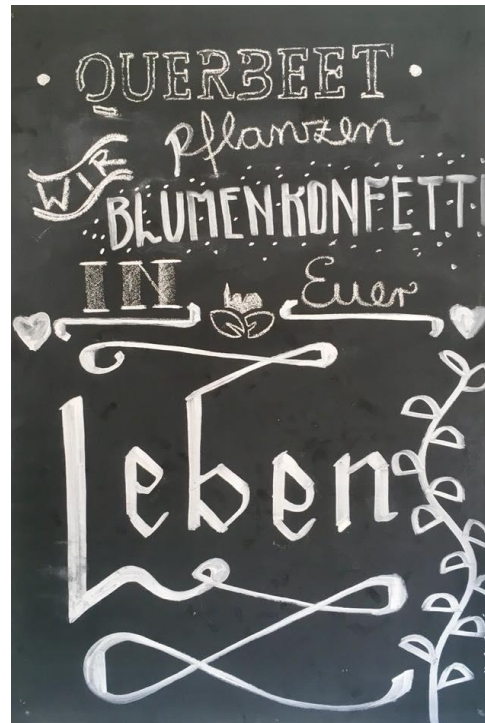 QUERBEET
WIR pflanzen
BLUMENKONFETTI
IN Euer
Leben